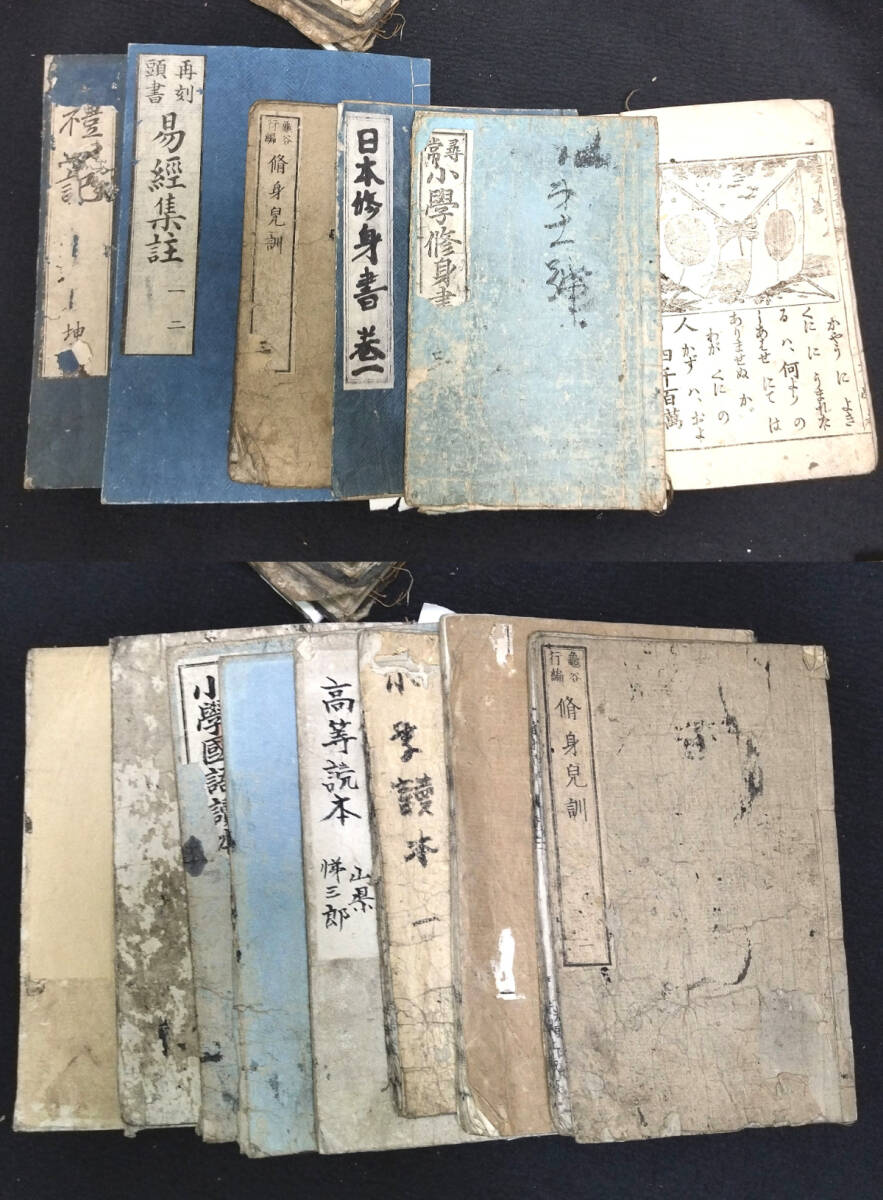 禮記
坤
再刻
頭書
易經集註
一二
龜谷
行編
脩身兒訓
三
日本修身書 巻一
尋常
小學修身書
三
かやうに よき
くにに うまれた
る ハ、何よりの
しあはせにては
ありませぬ か。
わが くにの
人 かず ハ、およ
四千百萬
小學國語讀本
高等読本
山県
悌三郎
小学讀本 一
龜谷
行編
脩身兒訓
二